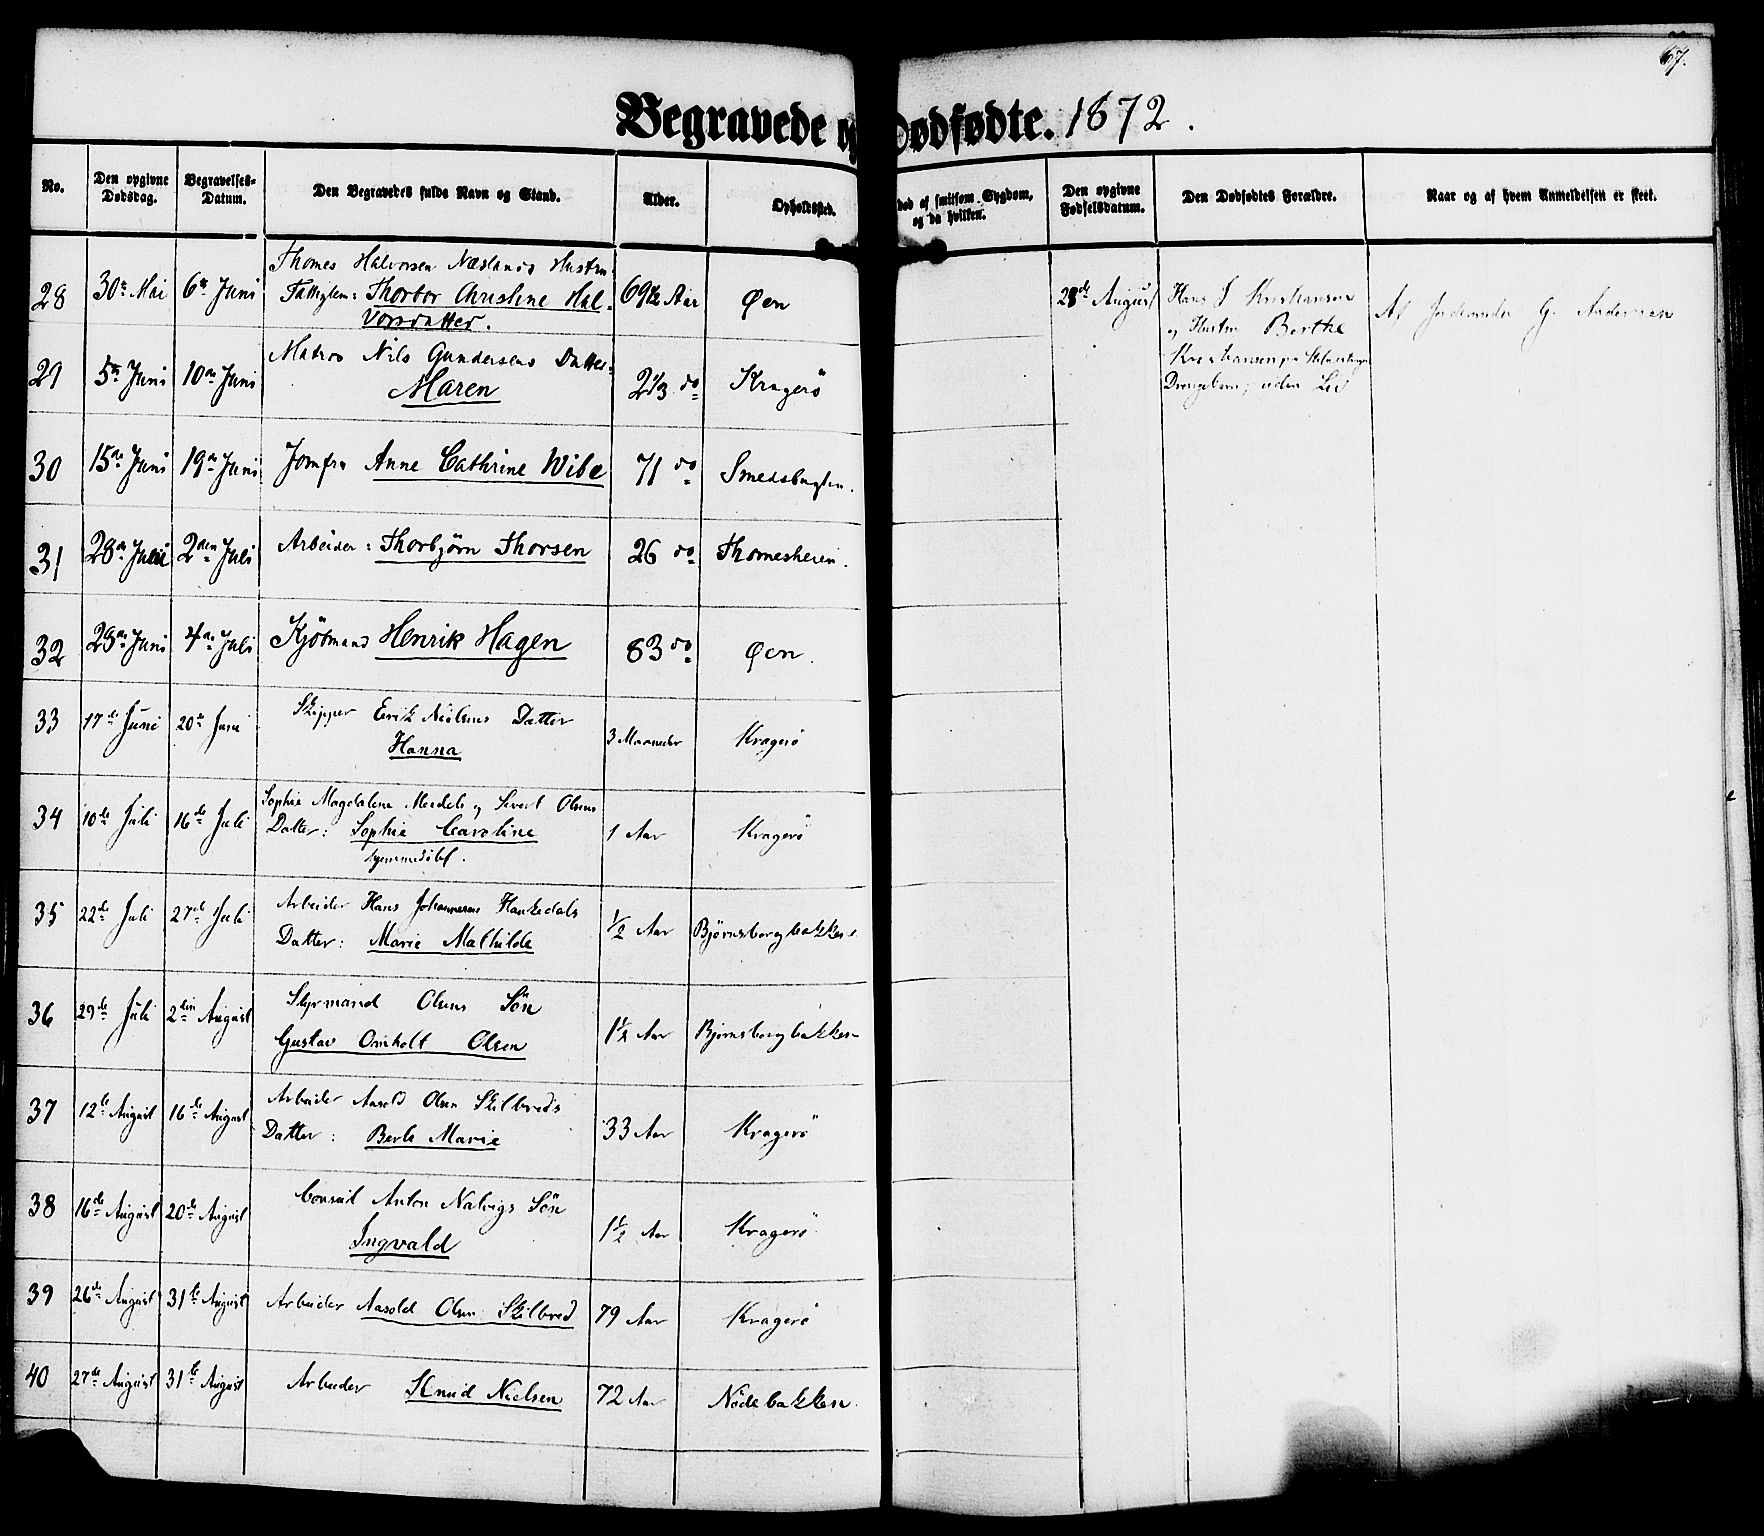 67.
Begravede og Dødfødte. 1872.
No.
Den opgivne
Dødsdag.
Begravelses-
Datum.
Den Begravedes fulde Navn og Stand.
Alder.
Opholdssted.
død af smitsom Sygdom,
og da hvilken.
Den opgivne
Fødselsdatum.
Den Dødfødtes Forældre.
Naar og af hvem Anmeldelsen er skeet.
28 30te Mai 6te Juni Thomes Halvorsen Næslands Hustru
Fattiglem: Thorbor Christine Hal-
vorsdatter. 69 1/2 Aar Øen
29 5te Juni 10de Juni Matros Nils Gundersens Datter:
Maren 2 1/3 do Kragerö
30 15de Juni 19de Juni Jomfru Anne Cathrine Wibe 71 do Smedsbugten.
31 28de Juni 2den Juli Arbeider: Thorbjørn Thorsen 26 do Thomesheien.
32 29de Juni 4de Juli Kjöbmand Henrik Hagen 83 do Øen.
33 17de Juni 20de Juni Skipper Erik Nielsens Datter
Hanna 3 Maaneder Kragerö
34 10de Juli 16de Juli Sophie Magdalene og Sivert Olsens
Datter: Sophie Caroline
hjemmedöbt. 1 Aar Kragerö
35 22de Juli 27de Juli Arbeider Hans Johannesen Haukedals
Datter: Marie Mathilde 1/2 Aar Bjørnsborgbakken
36 29de Juli 2den August Styrmand Olsens Sön
Gustav Omholt Olsen 1 1/2 Aar Bjørnsborgbakken
37 12te August 16de August Arbeider Aasold Olsen Skilbreds
Datter: Berte Marie 33 Aar Kragerö
38 16de August 20de August Consul Anton Sön
Ingvald 1 1/2 Aar Kragerö
39 26de August 31te August Arbeider Aasold Olsen Skilbred 79 Aar Kragerö
40 27de August 31te August Arbeider Knud Nielsen 72 Aar Nödebakken.
28de August Hans J Kristiansen
og Hustru Berthe
Kristiansen paa
Drengebarn, uden Liv
Af Jordemoder G. Andersen